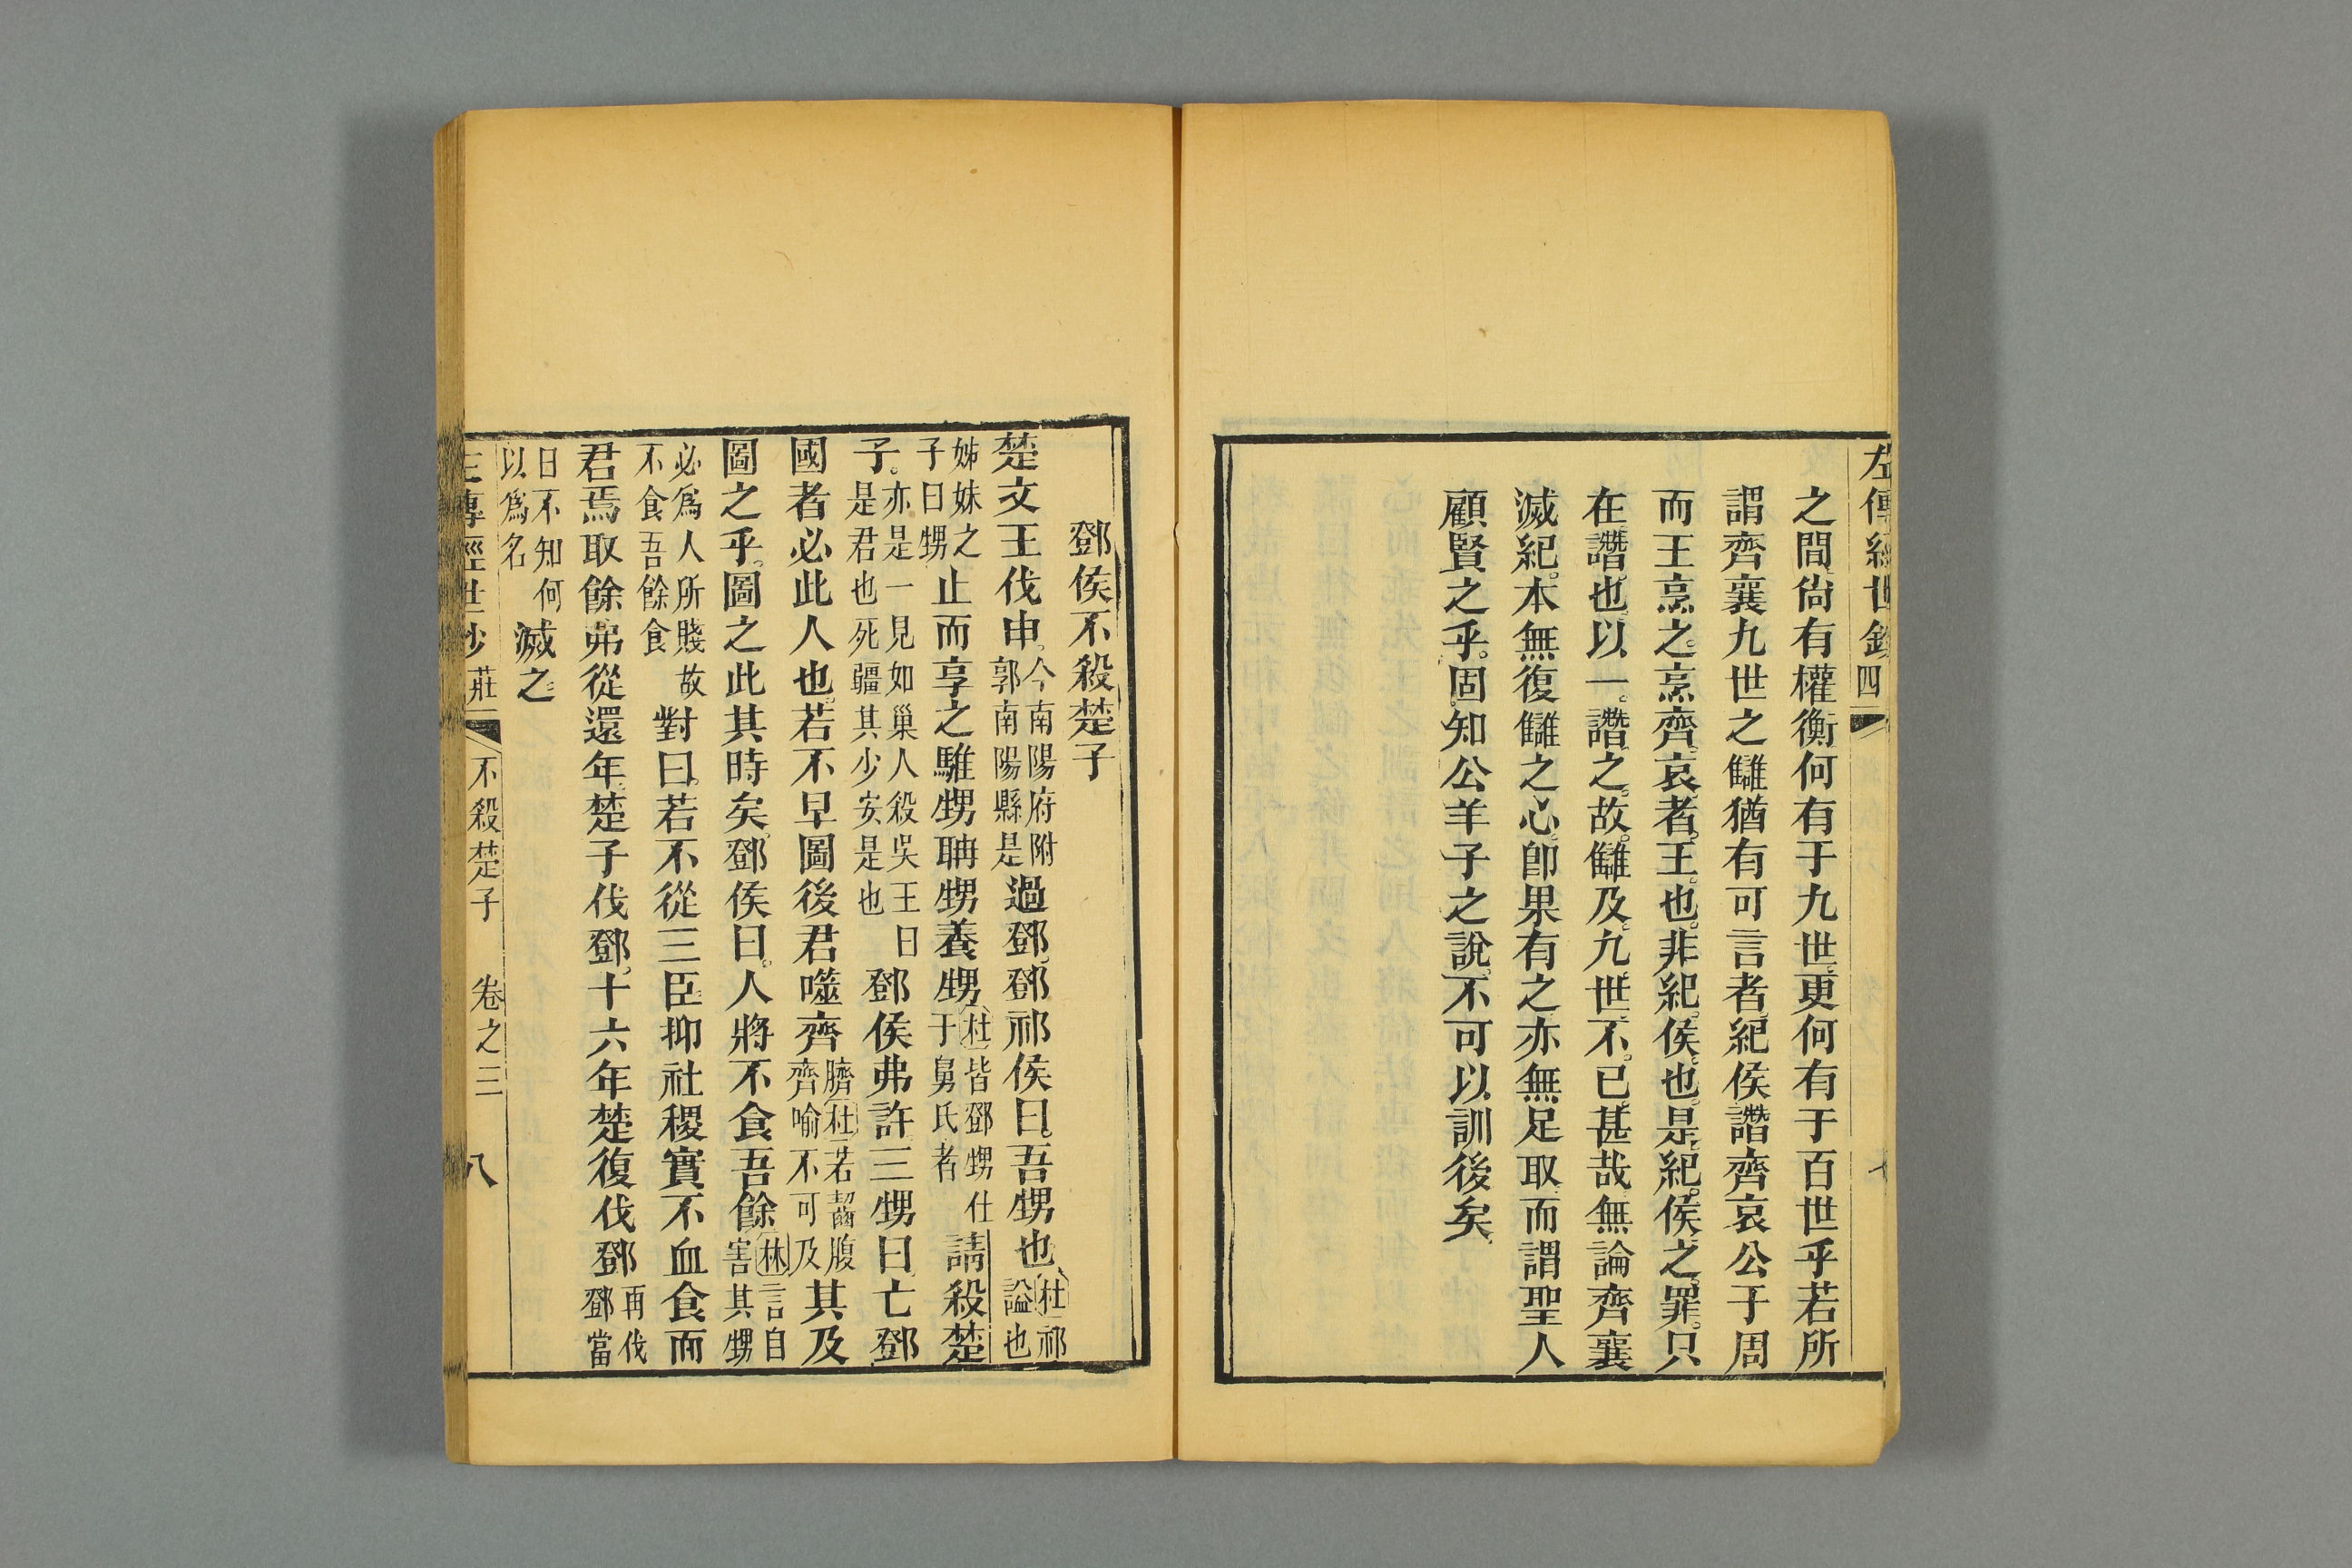 左傳經世鈔 四
之間尙有權衡何有于九世更何有于百世乎若所
謂齊襄九世之讎猶有可言者紀侯譖齊哀公于周
而王烹之烹齊哀者王也非紀侯也是紀侯之罪只
在譖也以一譖之故讎及九世不已甚哉無論齊襄
滅紀本無復讎之心卽果有之亦無足取而謂聖人
顧賢之乎固知公羊子之說不可以訓後矣
鄧侯不殺楚子
楚文王伐申今南陽府附郭南陽縣是過鄧鄧祁侯曰吾甥也杜祁謚也
姊妹之子曰甥止而享之騅甥聃甥養甥杜皆鄧甥仕于舅氏者請殺楚
子亦是一見如巢人殺吳王曰是君也死疆其少安是也鄧侯弗許三甥曰亡鄧
國者必此人也若不早圖後君噬齊臍杜若齧腹齊喻不可及其及
圖之乎圖之此其時矣鄧侯曰人將不食吾餘林言自害其甥
必爲人所賤故不食吾餘食對曰若不從三臣抑社稷實不血食而
君焉取餘弗從還年楚子伐鄧十六年楚復伐鄧再伐鄧當
日不知何以爲名滅之
左傳經世鈔 莊 不殺楚子 卷之三 八